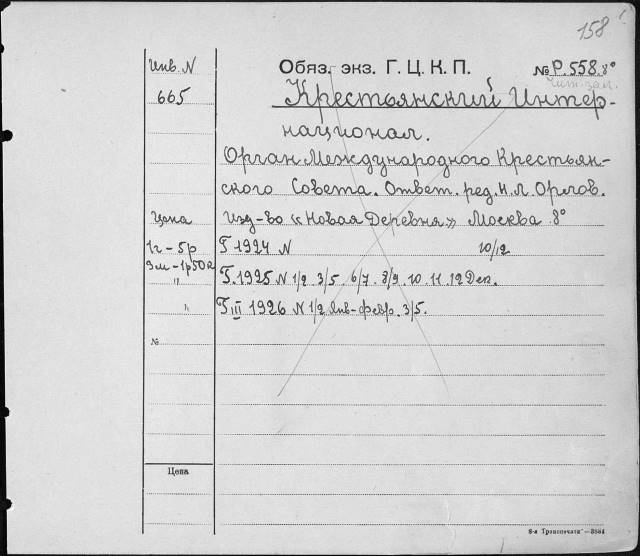 158
Инв. N
Обяз. экз. Г. Ц. К. П.
№ Р. 558. 8°
Чит. зал.
665
Крестьянский Интер-
национал.
Орган Международного Крестьян-
ского Совета. Ответ. ред. Н. Л. Орлов.
Цена
Изд-во «Новая Деревня» Москва 8°
1г – 5р
Г 1924 N 10/12
3м – 1р50к
Г. 1925 N 1/2 3/5. 6/7. 8/9. 10. 11. 12 Дек.
"
Г III 1926 N 1/2 Янв-февр. 3/5.
"
№
Цена
8-я Транспечати"—3884